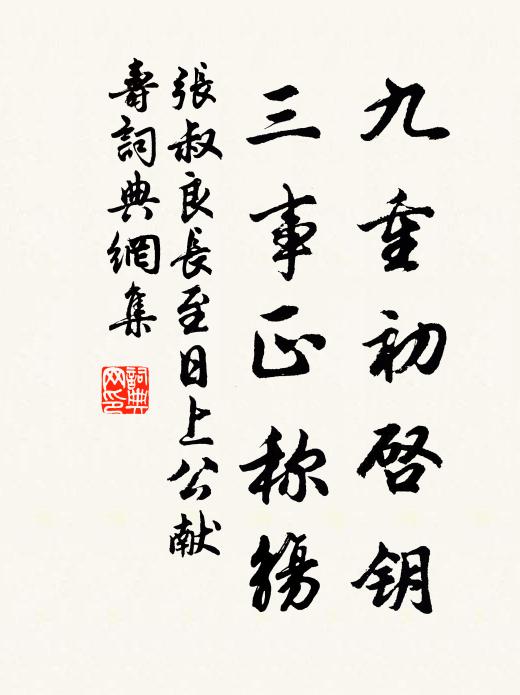 九重初啓钥
三事正称觴
張叔良長至日上公献
壽詞典網集
詞典网印